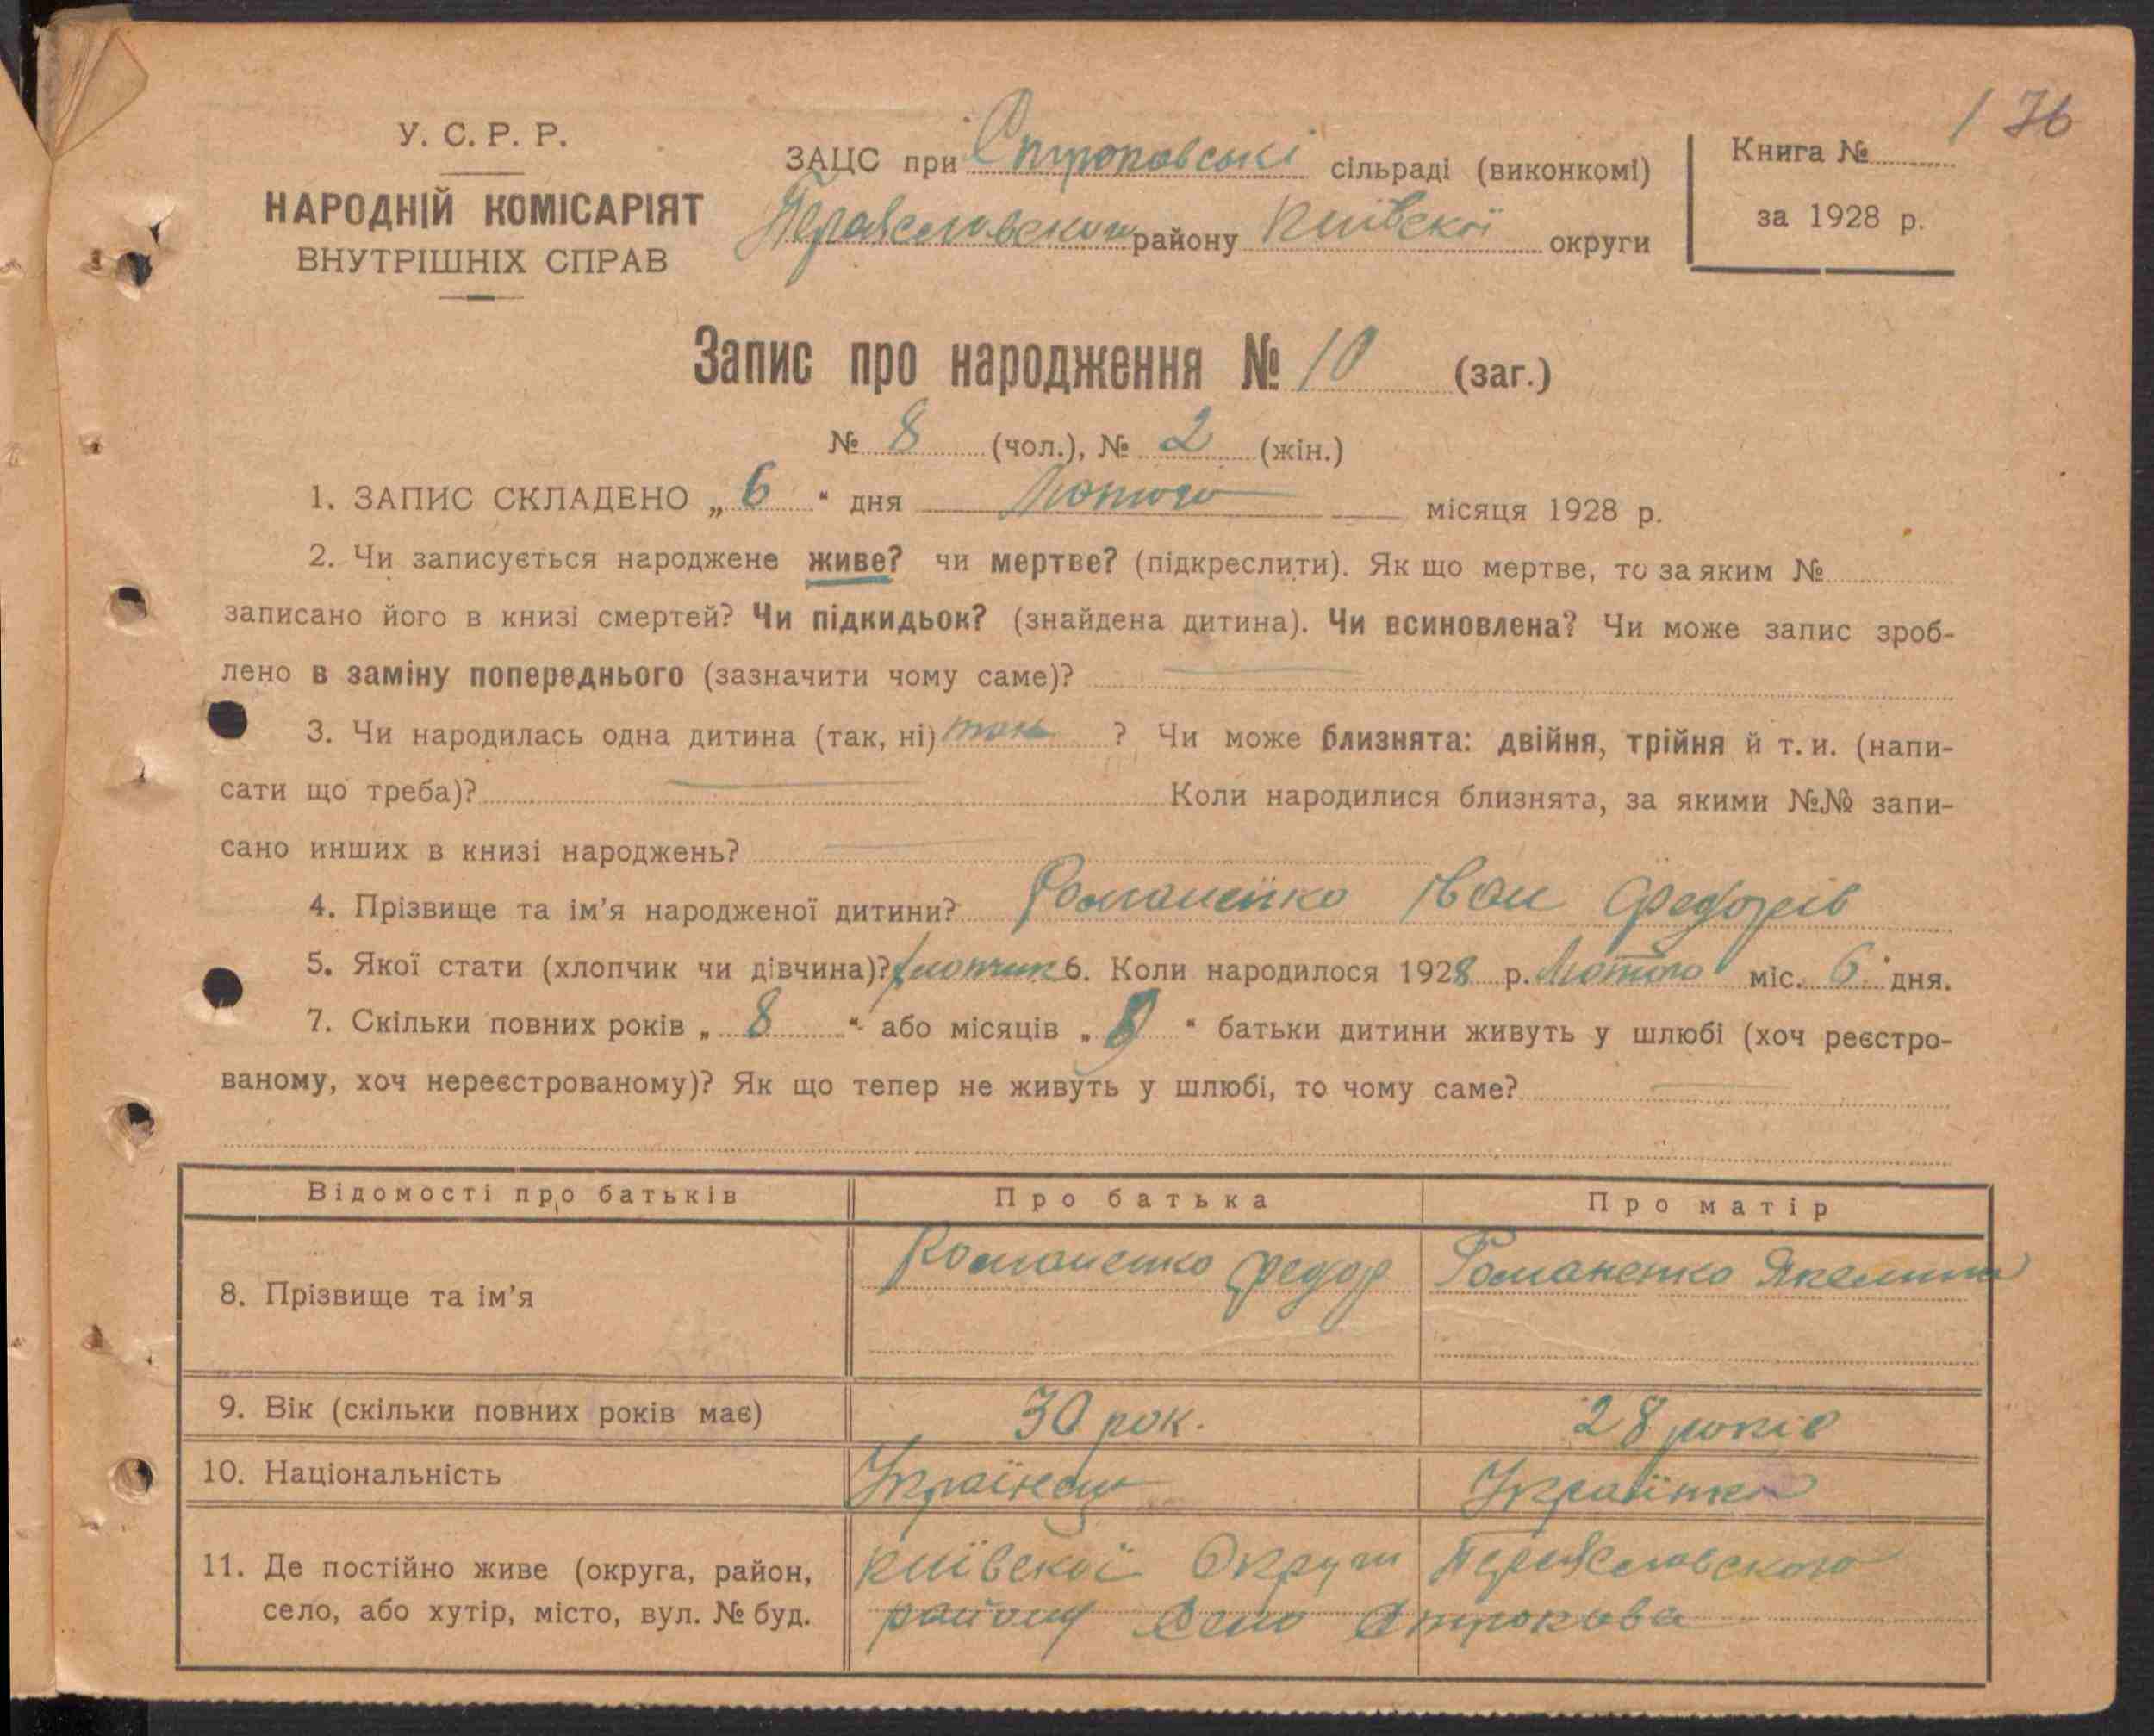 176
У. С. Р. Р.
НАРОДНІЙ КОМІСАРІЯТ
ВНУТРІШНІХ СПРАВ
ЗАЦС при Строковські сільраді (виконкомі)
Переяславского району Київскої округи
Книга №
за 1928 р.
Запис про народження № 10 (заг.)
№ 8 (чол.), № 2 (жін.)
1. ЗАПИС СКЛАДЕНО „ 6 “ дня Лютого місяця 1928 р.
2. Чи записується народжене живе? чи мертве? (підкреслити). Як що мертве, то за яким №
записано його в книзі смертей? Чи підкидьок? (знайдена дитина). Чи всиновлена? Чи може запис зроб-
лено в заміну попереднього (зазначити чому саме)?
3. Чи народилась одна дитина (так, ні) так ? Чи може близнята: двійня, трійня й т. и. (напи-
сати що треба)? Коли народилися близнята, за якими №№ запи-
сано инших в книзі народжень?
4. Прізвище та ім’я народженої дитини? Романенко Іван Федорів
5. Якої стати (хлопчик чи дівчина)? хлопчик 6. Коли народилося 1928 р. Лютого міс. 6 дня.
7. Скільки повних років „ 8 “ або місяців „ “ батьки дитини живуть у шлюбі (хоч реєстро-
ваному, хоч нереєстрованому)? Як що тепер не живуть у шлюбі, то чому саме?
Відомості про батьків Про батька Про матір
8. Прізвище та ім’я Романенко Федор Романенко Якелина
9. Вік (скільки повних років має) 30 рок. 28 років
10. Національність Українець Українка
11. Де постійно живе (округа, район, Київскої Округи Переяславского
село, або хутір, місто, вул. № буд. району Село Строкова